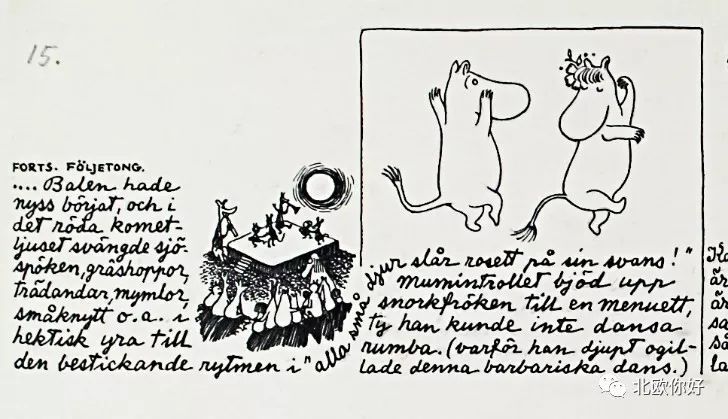 15.
FORTS. FÖLJETONG.
.... Balen hade
nyss börjat, och i
det röda komet-
ljuset svängde sjö-
spöken, gräshoppor,
trädandar, mymlor,
småknytt o.a. i
hektisk yra till
den bestickande rytmen i "alla små djur slår rosett på sin svans!"
Mumintrollet bjöd upp
snorkfröken till en menuett,
ty han kunde inte dansa
rumba. (varför han djupt ogil-
lade denna barbariska dans.)
Ka
är
är
sa
så
la
北欧你好